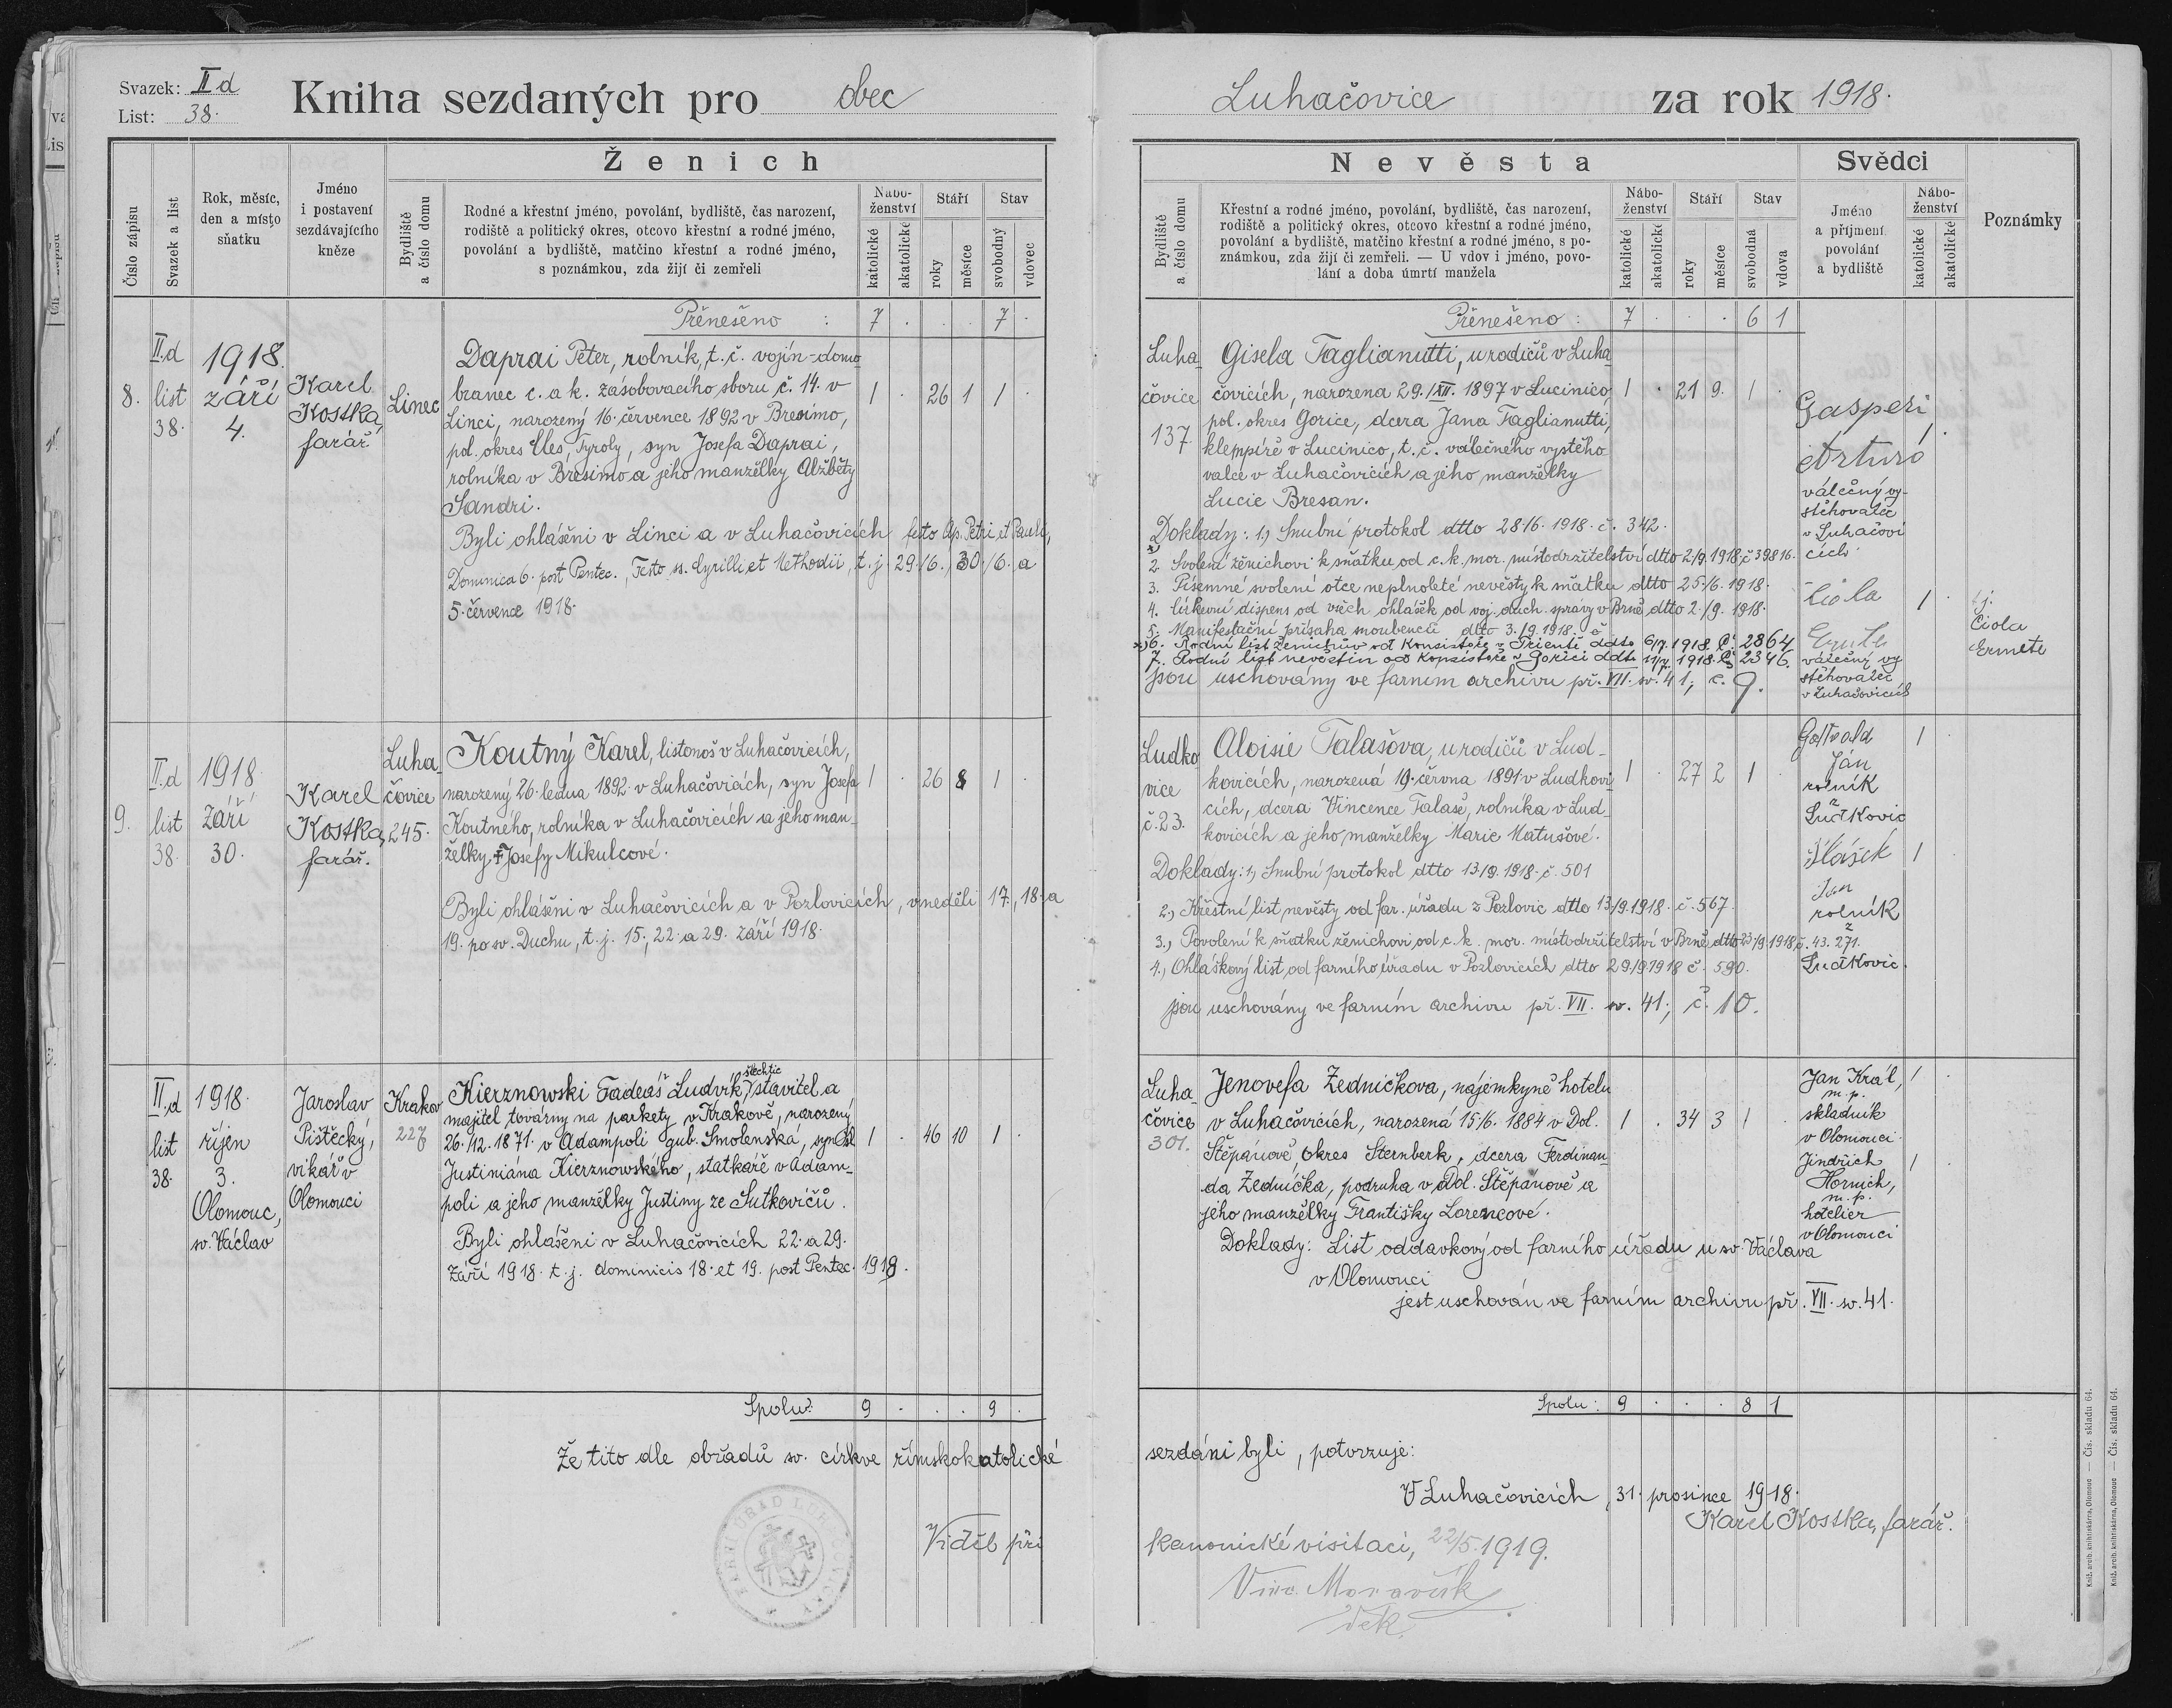 Svazek: II d
List: 38.
Kniha sezdaných pro obec
Číslo zápisu
Svazek a list
Rok, měsíc,
den a místo
sňatku
Jméno
i postavení
sezdávajícího
kněze
Ženich
Bydliště
a číslo domu
Rodné a křestní jméno, povolání, bydliště, čas narození,
rodiště a politický okres, otcovo křestní a rodné jméno,
povolání a bydliště, matčino křestní a rodné jméno,
s poznámkou, zda žijí či zemřeli
Nábo-
ženství
katolické
akatolické
Stáří
roky
měsíce
Stav
svobodný
vdovec
Přenešeno : 7 . . . 7 .
8.
II.d
list
38.
1918.
září
4.
Karel
Kostka,
farář
Linec
Daprai Peter, rolník, t. č. vojín-domo-
branec c. a k. zásobovacího sboru č. 14. v
Linci, narozený 16. července 1892 v Bresimo,
pol. okres Cles, Tyroly, syn Josefa Daprai,
rolníka v Bresimo a jeho manželky Alžběty
Sandri.
1 . 26 1 1 .
Byli ohlášeni v Linci a v Luhačovicích festo Ap. Petri et Pauli,
Dominica 6. post Pentec., Festo ss. Cyrilli et Methodii, t. j. 29./6., 30./6. a
5. července 1918.
9.
II.d
list
38.
1918
Září
30.
Karel
Kostka,
farář.
Luha-
čovice
245.
Koutný Karel, listonoš v Luhačovicích,
narozený 26. ledna 1892 v Luhačovicích, syn Josefa
Koutného, rolníka v Luhačovicích a jeho man-
želky † Josefy Mikulcové.
1 . 26 8 1 .
Byli ohlášeni v Luhačovicích a v Pozlovicích, v neděli 17., 18. a
19. po sv. Duchu, t. j. 15., 22. a 29. září 1918.
II.d
list
38.
1918.
říjen
3.
Olomouc,
sv. Václav
Jaroslav
Pištěcký,
vikář v
Olomouci
Krakov
227
Kierznowski Tadeáš Ludvík, šlechtic stavitel a
majitel továrny na parkety v Krakově, narozený
26./12. 1871. v Adampoli gub. Smolenská, syn
Justiniána Kierznowského, statkáře v Adam-
poli a jeho manželky Justiny ze Sutkovičů.
1 . 46 10 1 .
Byli ohlášeni v Luhačovicích 22. a 29.
září 1918. t. j. dominicis 18. et 19. post Pentec. 1918.
Spolu: 9 . . . 9 .
Že tito dle obřadů sv. církve římskokatolické
Viděl při
Luhačovice za rok 1918.
Nevěsta
Bydliště
a číslo domu
Křestní a rodné jméno, povolání, bydliště, čas narození,
rodiště a politický okres, otcovo křestní a rodné jméno,
povolání a bydliště, matčino křestní a rodné jméno, s po-
známkou, zda žijí či zemřeli. — U vdov i jméno, povo-
lání a doba úmrtí manžela
Nábo-
ženství
katolické
akatolické
Stáří
roky
měsíce
Stav
svobodná
vdova
Svědci
Jméno
a příjmení
povolání
a bydliště
Nábo-
ženství
katolické
akatolické
Poznámky
Přenešeno : 7 . . . 6 1
Luha-
čovice
137.
Gisela Taglianutti, u rodičů v Luha-
čovicích, narozena 29./XII. 1897 v Lucinico,
pol. okres Gorice, dcera Jana Taglianutti,
klempíře v Lucinico, t. č. válečného vystěho-
valce v Luhačovicích a jeho manželky
Lucie Bresan.
1 . 21 9. 1 .
Doklady: 1.) Snubní protokol dtto 28./6. 1918. č. 342.
2. Svolení ženichovi k sňatku od c. k. mor. místodržitelství dtto 2/9. 1918, č 39816.
3. Písemné svolení otce neplnoleté nevěsty k sňatku dtto 25./6. 1918.
4. Církevní dispens od všech ohlášek od voj. duch. správy v Brně dtto 2./9. 1918.
5. Manifestační přísaha snoubenců dtto 3./9. 1918.
6. Rodní list ženichův od Konsistoře v Trientě ddto 6/7. 1918 č. 2864
7. Rodní list nevěstin od Konsistoře v Gorici ddto 11/7. 1918. č. 2346.
jsou uschovány ve farním archivu př. VII. sv. 41; č. 9.
Gasperi
Arturo
válečný vy-
stěhovalec
v Luhačovi-
cích.
Ciola
Ermete
válečný vy-
stěhovalec
v Luhačovicích
1
t. j.
Ciola
Ermete
Ludko-
vice
č. 23.
Aloisie Talašova, u rodičů v Lud-
kovicích, narozená 19. června 1891 v Ludkovi-
cích, dcera Vincence Talaše, rolníka v Lud-
kovicích a jeho manželky Marie Matušové.
1 . 27 2 1 .
Doklady: 1.) Snubní protokol dtto 13/9. 1918. č. 501
2.) Křestní list nevěsty od far. úřadu z Pozlovic dtto 13./9. 1918. č. 567.
3.) Povolení k sňatku ženichovi od c. k. mor. místodržitelství v Brně dtto 23/9. 1918, č. 43. 271.
4.) Ohláškový list od farního úřadu v Pozlovicích dtto 29./9. 1918 č. 590.
jsou uschovány ve farním archivu př. VII. sv. 41; č. 10.
Gottvald
Ján
rolník
z
Ludkovic
1
Hlášek
Jan
rolník
z
Ludkovic.
1
Luha-
čovice
301.
Jenovefa Zedničkova, nájemkyně hotelu
v Luhačovicích, narozená 15./6. 1884 v Dol.
Štěpánově, okres Šternberk, dcera Ferdinan-
da Zedníčka, podruha v Dol. Štěpánově a
jeho manželky Františky Lorencové.
1 . 34 3 1 .
Doklady: List oddavkový od farního úřadu u sv. Václava
v Olomouci
jest uschován ve farním archivu př. VII. sv. 41.
Jan Král,
m. p.
skladník
v Olomouci
1
Jindřich
Hornich,
m. p.
hotelier
v Olomouci
1
Spolu : 9 . . . 8 1
sezdáni byli, potvrzuje:
V Luhačovicích, 31. prosince 1918.
Karel Kostka, farář.
kanonické visitaci, 22/5. 1919.
Vinc. Moravčík
děk.
Kniž. arcib. knihtiskárna, Olomouc — Čís. skladu 64.
Kniž. arcib. knihtiskárna, Olomouc — Čís. skladu 64.